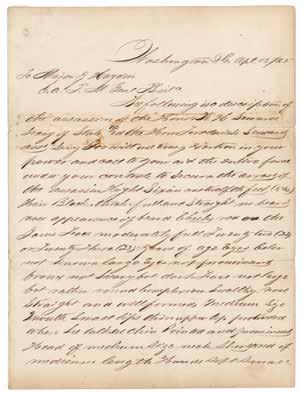 Washington DC Apl 15/65
To Major
The following is a description of
the assassin of the Hon W H Seward
Secy of State and the Hon Frederick Seward
You will use every exertion in your
power and call to your aid the entire force
under your control to secure the arrest of
the assassin Height Six one
Hair Black thick full and straight no beard
nor appearance of beard cheeks red on the
Jaws face moderately full Twenty two (22)
or Twenty three (23) years of age Eyes Color
not known large Eyes not prominent
brows not heavy but dark face not large
but rather round Complexion healthy nose
Straight and well formed Medium Size
Mouth Small lips thin upper lip protruded
when he talked Chin Pointed and prominent
Head of medium Size neck Short and of
medium length Hands Soft and Small